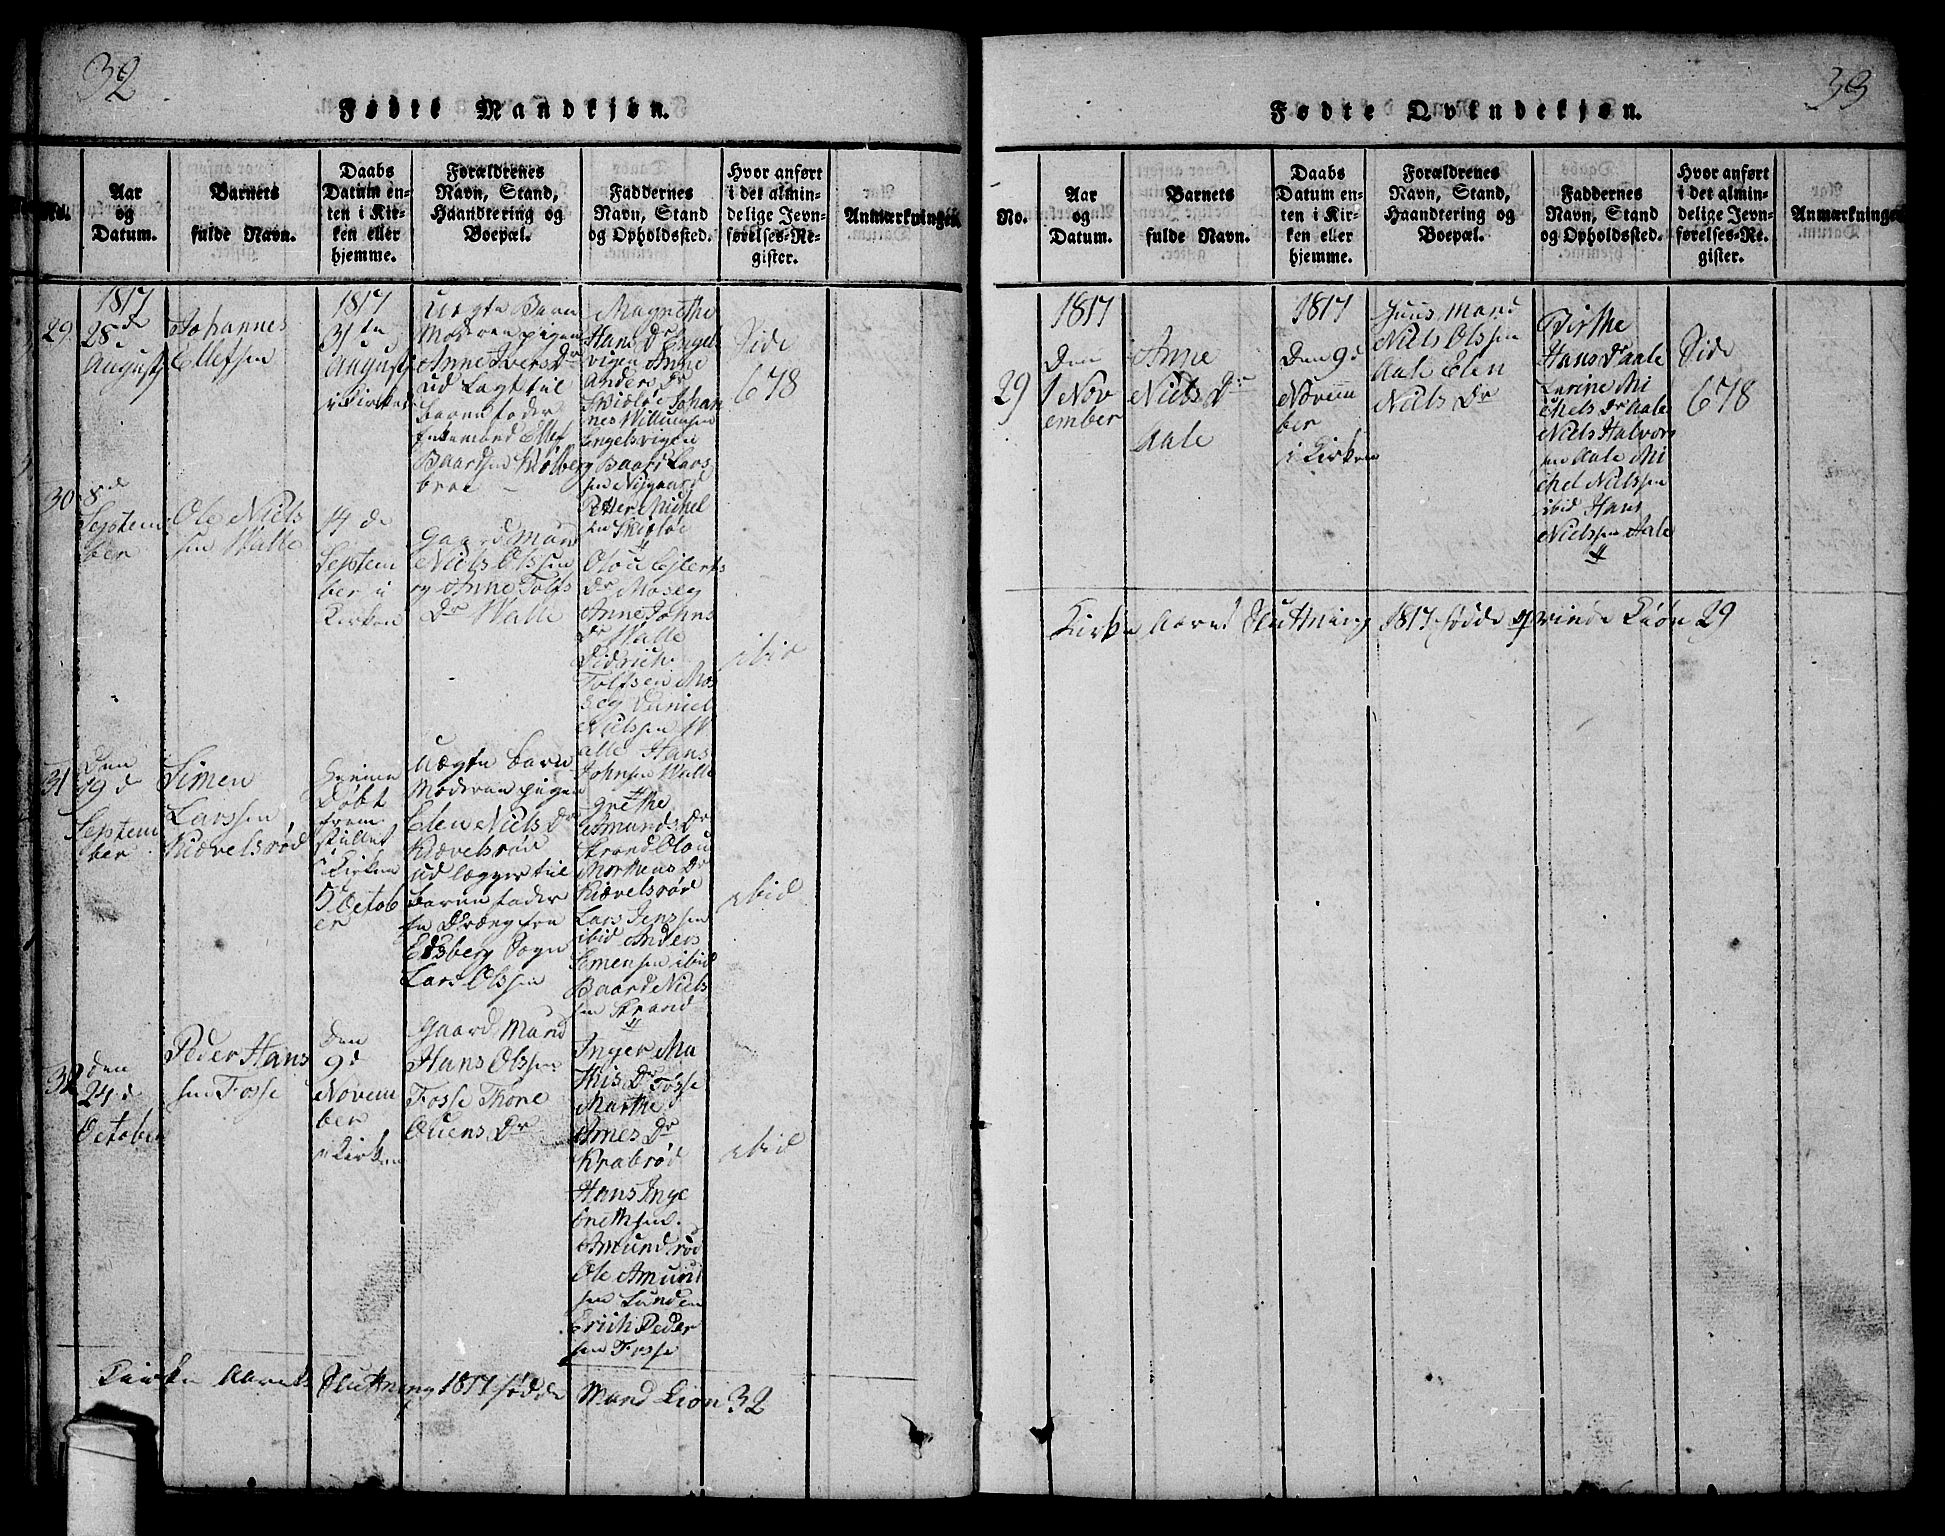 32
Fødte Mandkjøn.
No.
Aar
og
Datum.
Barnets
fulde Navn.
Daabs
Datum en-
ten i Kir-
ken eller
hjemme.
Forældrenes
Navn, Stand,
Haandtering og
Boepæl.
Faddernes
Navn, Stand
og Opholdssted.
Hvor anført
i det almin-
delige Jevn-
førelses-Re-
gister.
Anmærkninger.
29
1817
28de
August
Johannes
Ellefsen
1817
31te
August
i Kirken
Uægte Barn
Moderen pigen
Anne Iversdr
ud Lagt til
barnefader
Enkemand Ellef
Baardsen Kølberg
broe
Magrethe
Hans Dr Engel
vigen Anne
Anders Dr
Johan
nes Willumsen
Engelsvigen
Baard Lars
sen Nygaard
Petter Michel
sen
Side
678
30
8de
Septem
ber
Ole Niels
sen Walle
14 de
Septem
ber i
Kirken
Gaardmand
Niels Olssen
og Anne Tolfs
Dr Walle
Oloue Ejlerts
Dr Moseg
Anne Johns
Dr Walle
Didrich
Tolfsen Mos
eg Daniel
Nielssen W
alle Hans
Johnsen Walle
ibid
31
Den
19 d
Septem
ber
Simen
Larssen
Kiævelsrød
Hjemme
Døbt
frem
stillet
i Kirken
5 Octob
er
Uægte barn
Moderen pigen
Elen Niels Dr
Kiævelsrød
udlægger til
barnefader
en Dræng fra
Edsberg Sogn
Lars Olssen
grethe
Amunds Dr
Strand Olou
Mortens Dr
Kiævelsrød
Lars Jenssen
ibid Anders
Simensen ibid
Baard Niels
sen Strand
ibid
32
den
24 d
October
Peder Hans
sen Fosse
den
9d
Novem
ber
i Kirken
Gaard Mand
Hans Olssen
Fosse Thone
Ouens Dr
Inger Ma
this Dr Fosse
Marthe
Arnes Dr
Krabrød
Hans Inge
brethsen
Amundrød
Ole Amund
sen Lunden
Erich Peder
sen Fosse
ibid
Kirke Aarets Sluttning 1817 fødde Mand Kiøn 32
33
Fødte Qvindekjøn.
No.
Aar
og
Datum.
Barnets
fulde Navn.
Daabs
Datum en-
ten i Kir-
ken eller
hjemme.
Forældrenes
Navn, Stand,
Haandtering og
Boepæl.
Faddernes
Navn, Stand
og Opholdssted.
Hvor anført
i det almin-
delige Jevn-
førelses-Re-
gister.
Anmærkninger
29
1817
Den
1 Nov
ember
Anne
Niels Dr
Aale
1817
Den 9 d
Novem
ber
i Kirken
Huus Mand
Niels Olssen
Aale Elen
Niels Dr
Birthe
Hans Dr Aale
Karine Mi
chels Dr Aale
Niels Halvors
sen Aale Mi
chel Nielssen
ibid Hans
Nielssen Aale
Side
678
Kirke Aaret Sluttning 1817 fødde qvinde Kiøn 29